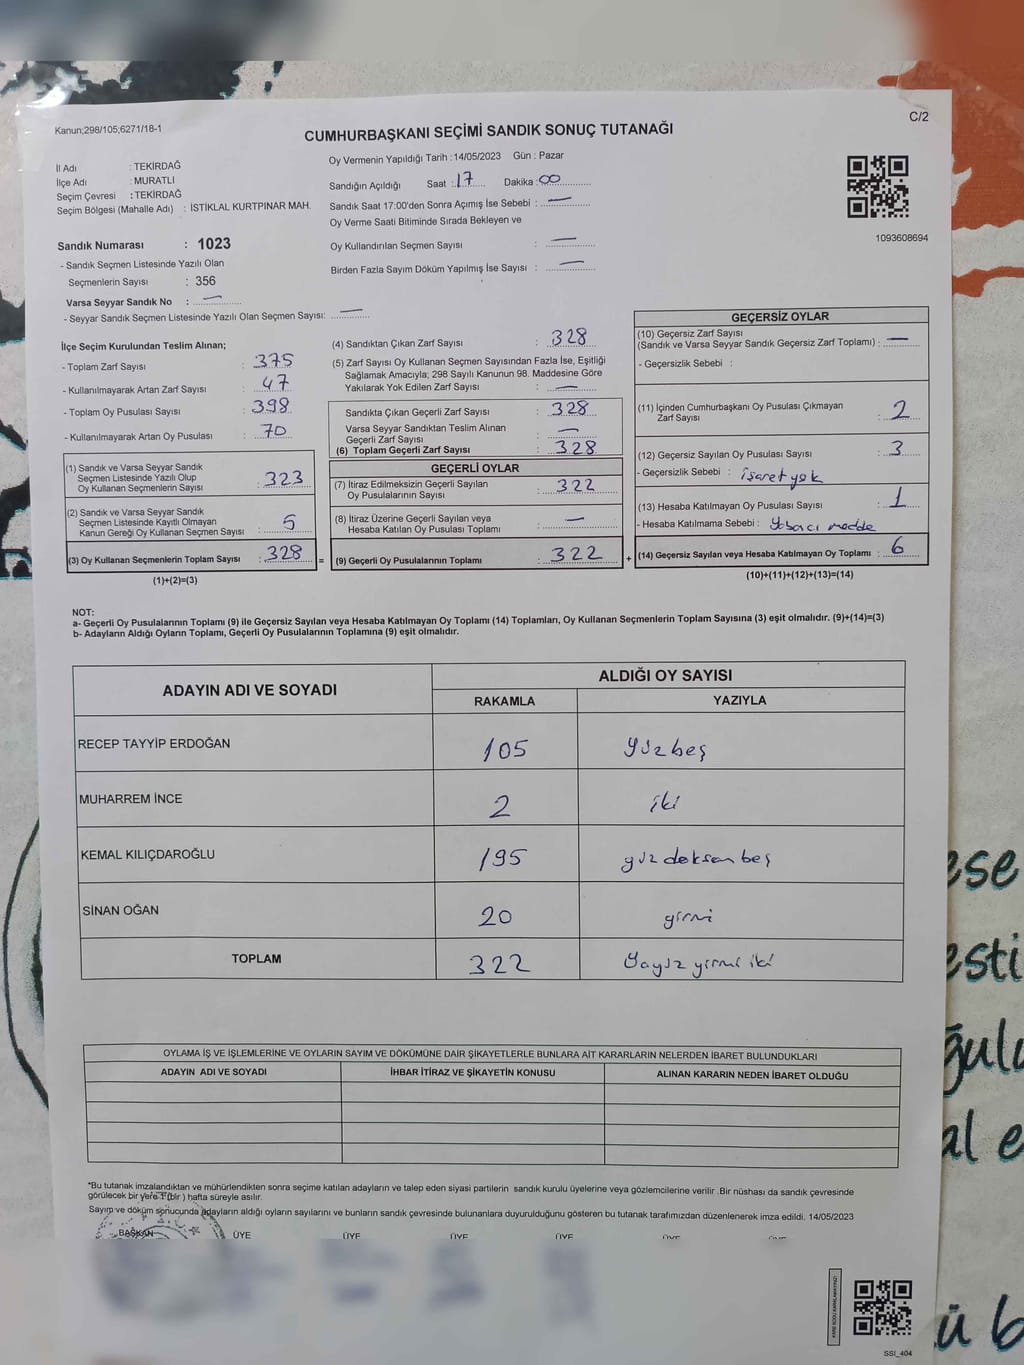 Kanun;298/105;6271/18-1
C/2
CUMHURBAŞKANI SEÇİMİ SANDIK SONUÇ TUTANAĞI
İl Adı : TEKİRDAĞ
İlçe Adı : MURATLI
Seçim Çevresi : TEKİRDAĞ
Seçim Bölgesi (Mahalle Adı) : İSTİKLAL KURTPINAR MAH.
Sandık Numarası : 1023
- Sandık Seçmen Listesinde Yazılı Olan
Seçmenlerin Sayısı : 356
Varsa Seyyar Sandık No : —
- Seyyar Sandık Seçmen Listesinde Yazılı Olan Seçmen Sayısı: —
Oy Vermenin Yapıldığı Tarih : 14/05/2023 Gün : Pazar
Sandığın Açıldığı Saat : 17 Dakika : 00
Sandık Saat 17:00'den Sonra Açımış İse Sebebi : —
Oy Verme Saati Bitiminde Sırada Bekleyen ve
Oy Kullandırılan Seçmen Sayısı : —
Birden Fazla Sayım Döküm Yapılmış İse Sayısı : —
1093608694
İlçe Seçim Kurulundan Teslim Alınan;
- Toplam Zarf Sayısı : 375
- Kullanılmayarak Artan Zarf Sayısı : 47
- Toplam Oy Pusulası Sayısı : 398
- Kullanılmayarak Artan Oy Pusulası : 70
(1) Sandık ve Varsa Seyyar Sandık
Seçmen Listesinde Yazılı Olup
Oy Kullanan Seçmenlerin Sayısı : 323
(2) Sandık ve Varsa Seyyar Sandık
Seçmen Listesinde Kayıtlı Olmayan
Kanun Gereği Oy Kullanan Seçmen Sayısı : 5
(3) Oy Kullanan Seçmenlerin Toplam Sayısı : 328
(1)+(2)=(3)
(4) Sandıktan Çıkan Zarf Sayısı : 328
(5) Zarf Sayısı Oy Kullanan Seçmen Sayısından Fazla İse, Eşitliği
Sağlamak Amacıyla; 298 Sayılı Kanunun 98. Maddesine Göre
Yakılarak Yok Edilen Zarf Sayısı : —
Sandıkta Çıkan Geçerli Zarf Sayısı : 328
Varsa Seyyar Sandıktan Teslim Alınan
Geçerli Zarf Sayısı : —
(6) Toplam Geçerli Zarf Sayısı : 328
GEÇERLİ OYLAR
(7) İtiraz Edilmeksizin Geçerli Sayılan
Oy Pusulalarının Sayısı : 322
(8) İtiraz Üzerine Geçerli Sayılan veya
Hesaba Katılan Oy Pusulası Toplamı : —
= (9) Geçerli Oy Pusulalarının Toplamı : 322
GEÇERSİZ OYLAR
(10) Geçersiz Zarf Sayısı
(Sandık ve Varsa Seyyar Sandık Geçersiz Zarf Toplamı) : —
- Geçersizlik Sebebi :
(11) İçinden Cumhurbaşkanı Oy Pusulası Çıkmayan
Zarf Sayısı : 2
(12) Geçersiz Sayılan Oy Pusulası Sayısı : 3
- Geçersizlik Sebebi : işaret yok
(13) Hesaba Katılmayan Oy Pusulası Sayısı : 1
- Hesaba Katılmama Sebebi : Yabancı madde
+ (14) Geçersiz Sayılan veya Hesaba Katılmayan Oy Toplamı : 6
(10)+(11)+(12)+(13)=(14)
NOT:
a- Geçerli Oy Pusulalarının Toplamı (9) ile Geçersiz Sayılan veya Hesaba Katılmayan Oy Toplamı (14) Toplamları, Oy Kullanan Seçmenlerin Toplam Sayısına (3) eşit olmalıdır. (9)+(14)=(3)
b- Adayların Aldığı Oyların Toplamı, Geçerli Oy Pusulalarının Toplamına (9) eşit olmalıdır.
ADAYIN ADI VE SOYADI
ALDIĞI OY SAYISI
RAKAMLA YAZIYLA
RECEP TAYYİP ERDOĞAN 105 yüzbeş
MUHARREM İNCE 2 iki
KEMAL KILIÇDAROĞLU 195 yüz doksan beş
SİNAN OĞAN 20 yirmi
TOPLAM 322 üçyüz yirmi iki
OYLAMA İŞ VE İŞLEMLERİNE VE OYLARIN SAYIM VE DÖKÜMÜNE DAİR ŞİKAYETLERLE BUNLARA AİT KARARLARIN NELERDEN İBARET BULUNDUKLARI
ADAYIN ADI VE SOYADI İHBAR İTİRAZ VE ŞİKAYETİN KONUSU ALINAN KARARIN NEDEN İBARET OLDUĞU
*Bu tutanak imzalandıktan ve mühürlendikten sonra seçime katılan adayların ve talep eden siyasi partilerin sandık kurulu üyelerine veya gözlemcilerine verilir .Bir nüshası da sandık çevresinde
görülecek bir yere 1 (bir ) hafta süreyle asılır.
Sayım ve döküm sonucunda adayların aldığı oyların sayılarını ve bunların sandık çevresinde bulunanlara duyurulduğunu gösteren bu tutanak tarafımızdan düzenlenerek imza edildi. 14/05/2023
BAŞKAN ÜYE ÜYE ÜYE ÜYE ÜYE
SSI_404
ese
esti
ğulu
al e
ü b